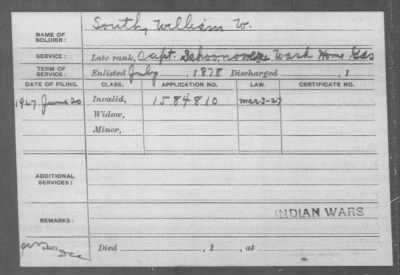 NAME OF SOLDIER: South, William W.
SERVICE: Late rank, Capt. Schoonover's Wash Home Gds
TERM OF SERVICE: Enlisted July , 1878 Discharged , 1
DATE OF FILING. CLASS. APPLICATION NO. LAW. CERTIFICATE NO.
1927 June 20 Invalid, 1584810 Mar 3-27
Widow,
Minor,
ADDITIONAL SERVICES:
REMARKS: INDIAN WARS
Died , 1 , at